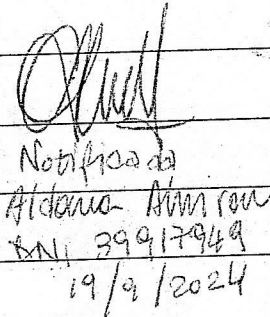 Notificada
Aldana Almiron
DNI 39917949
19/9/2024